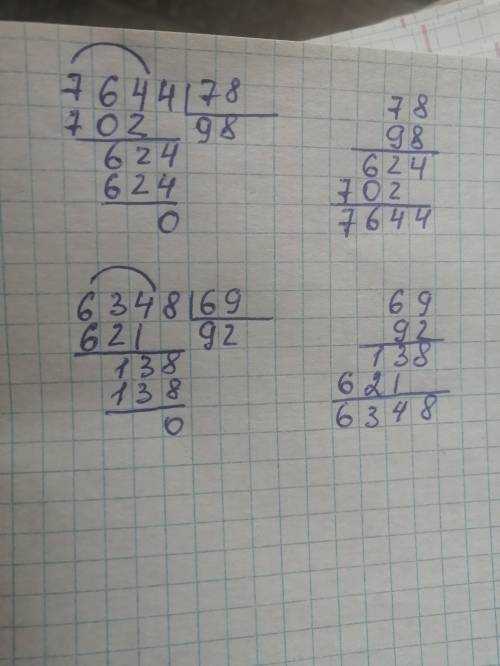 7644|78
702 98
624
624
0
78
98
624
702
7644
6348|69
621 92
138
138
0
69
92
138
621
6348